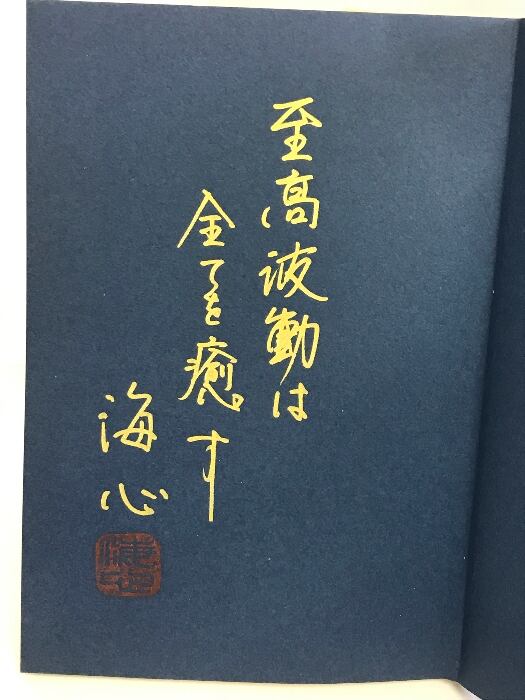 至高波動は
全てを癒す
海心